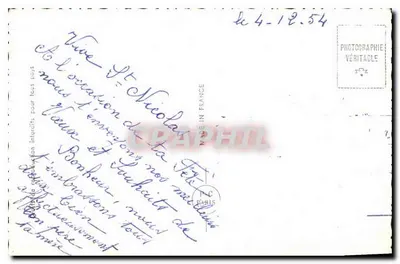 le 4-12.54
Vive St Nicolas
A l'occasion de ta Fête
nous t'envoyons nos meilleurs
Vœux et Souhaits de
Bonheur, nous
t'embrassons tous
deux bien
affectueusement
ton père
ta mère
PHOTOGRAPHIE
VÉRITABLE
MADE IN FRANCE
PARIS